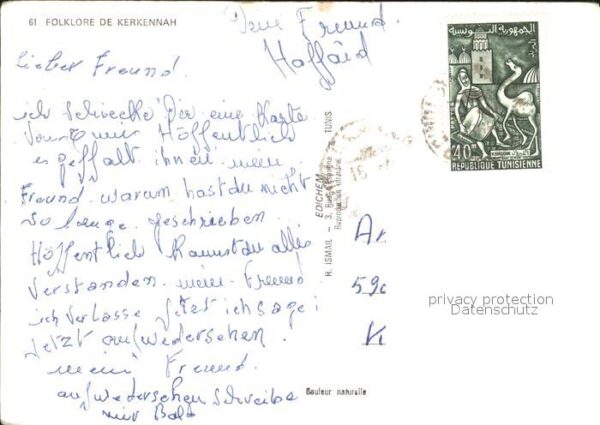 61 FOLKLORE DE KERKENNAH
Dein Freund.
Haffaïd
lieber Freund.
ich schreibe Dir eine Karte
von mir Höffentlich
es gefällt ihnen mein
Freund. warum hast du nicht
so lange geschrieben
Höffentlich kannst du alles
verstanden. mein Freund
ich verlasse jetzt ich sage
jetzt aufwiedersehen.
mein Freund.
aufwiedersehen schreibe
mir Bald
H. ISMAIL — 3, TUNIS
EDICHEM
Reproduction interdite
Couleur naturelle
الجمهورية التونسية
40m
KAIROUAN
REPUBLIQUE TUNISIENNE
Ar
590
K
privacy protection
Datenschutz